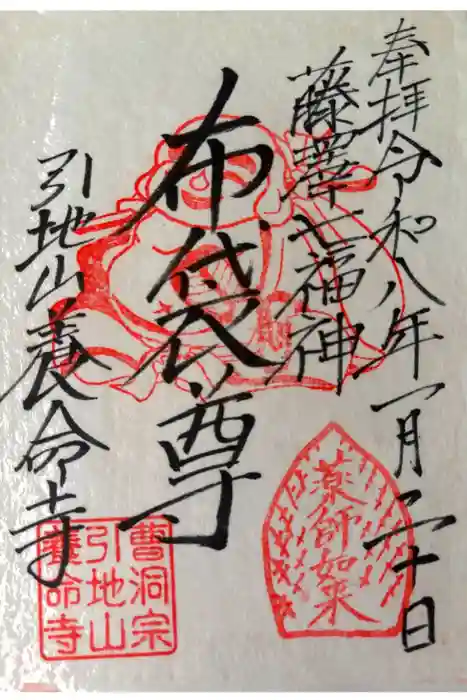 奉拝 令和八年一月二十日
藤澤七福神
布袋尊
引地山養命寺
薬師如来
曹洞宗
引地山
養命寺